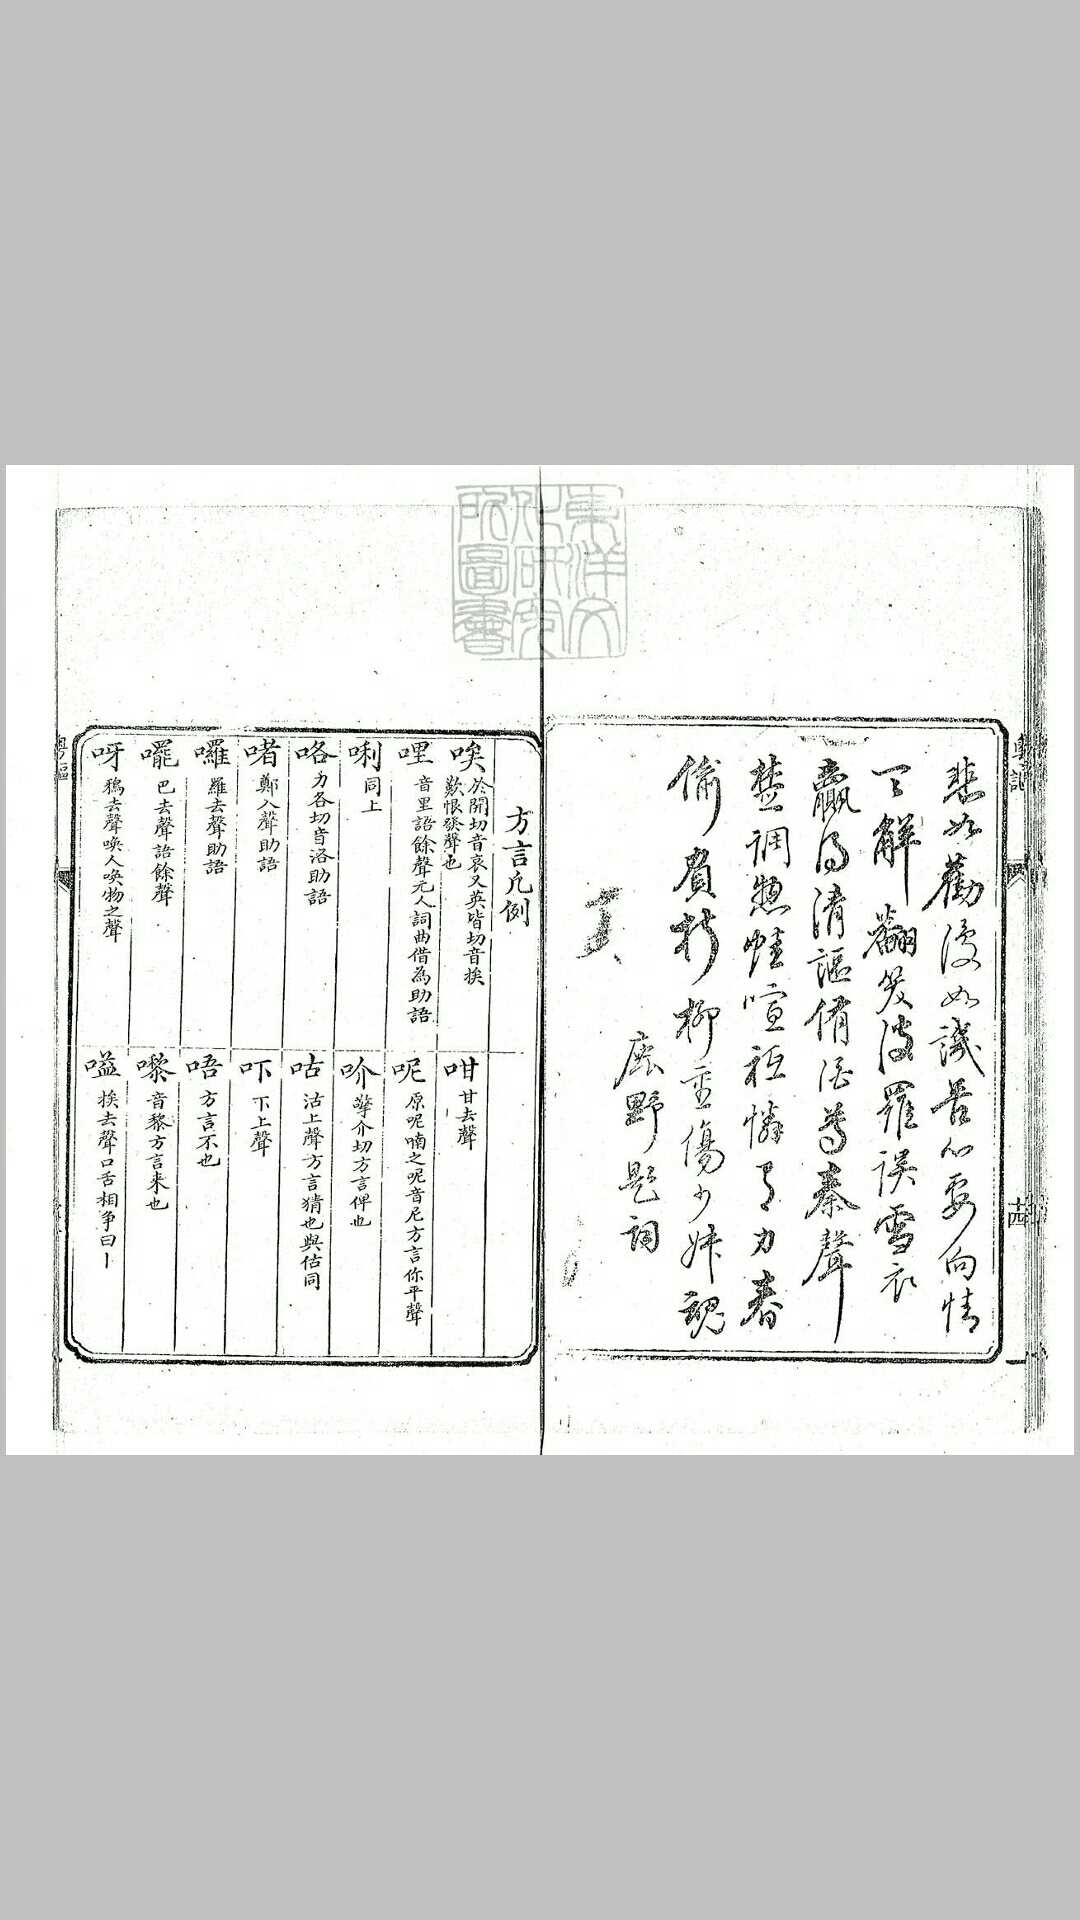 東洋文
化研究
所圖書
悲如勸憂如譏苦心要向情
天解翻笑波羅誤雪衣
贏得清謳侑酒尊秦聲
楚調惹蛙喧祗憐有力春
偷負折柳重傷少妹魂
野題詞
十四
方言凡例
唉 於開切音哀又英皆切音挨
歎恨發聲也
哩 音里語餘聲元人詞曲借為助語
唎 同上
咯 力各切音洛助語
啫 鄭入聲助語
囉 羅去聲助語
嚸 巴去聲語餘聲
呀 鴉去聲喚人喚物之聲
咁 甘去聲
呢 原呢喃之呢音尼方言你平聲
吤 擎介切方言俾也
咕 沽上聲方言猜也與估同
吓 下上聲
唔 方言不也
嚟 音黎方言来也
嗌 挨去聲口舌相争曰丨
粵謳